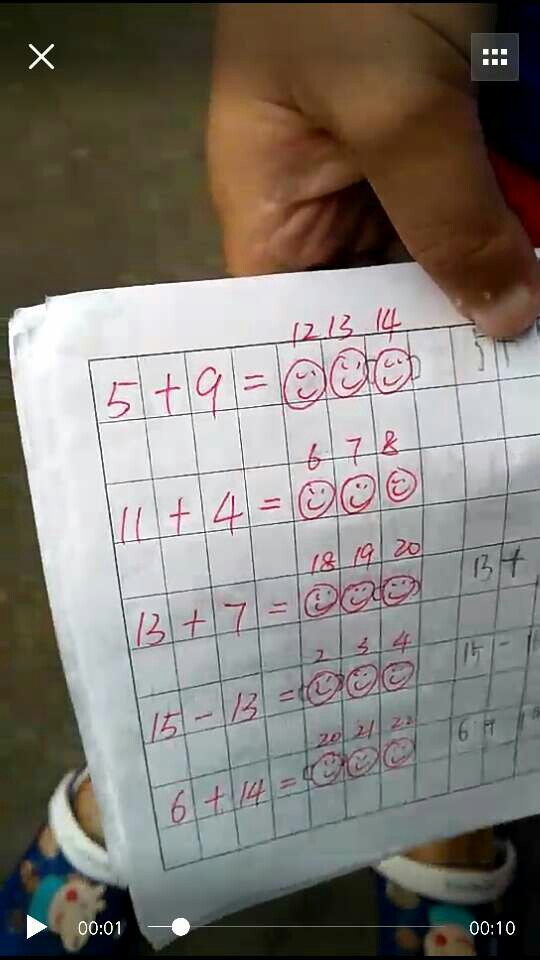 12 13 14
5 + 9 =
6 7 8
11 + 4 =
18 19 20
13 + 7 = 13 +
2 3 4
15 - 13 = 15 -
20 21 22
6 + 14 = 6 +
00:01 00:10